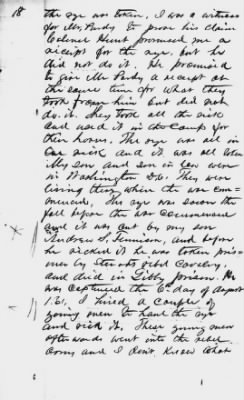 18
the rye was taken. I was a witness
for Mr. Purdy to prove his claim
Colonel Hunt promised me a
receipt for the rye, but he
did not do it. He promised
to give Mr. Purdy a receipt at
the same time for what they
took from him but did not
do it. they took all the rick
and used it in the Camp for
their horses. The rye was all in
one rick, and it was all
My son and son in law were
in Washington D.C. They were
living there when the war com-
menced. The rye was sown the
fall before the war commenced
and it was cut by my son
Andrew S. Tennison, and before
he ricked it he was taken priso-
ner by Stuarts rebel Cavalry,
and died in Libby prison. He
was captured the 6th day of August
1861. I hired a couple of
young men to haul the rye
and rick it. These young men
afterwards went into the rebel
army and I don't know what